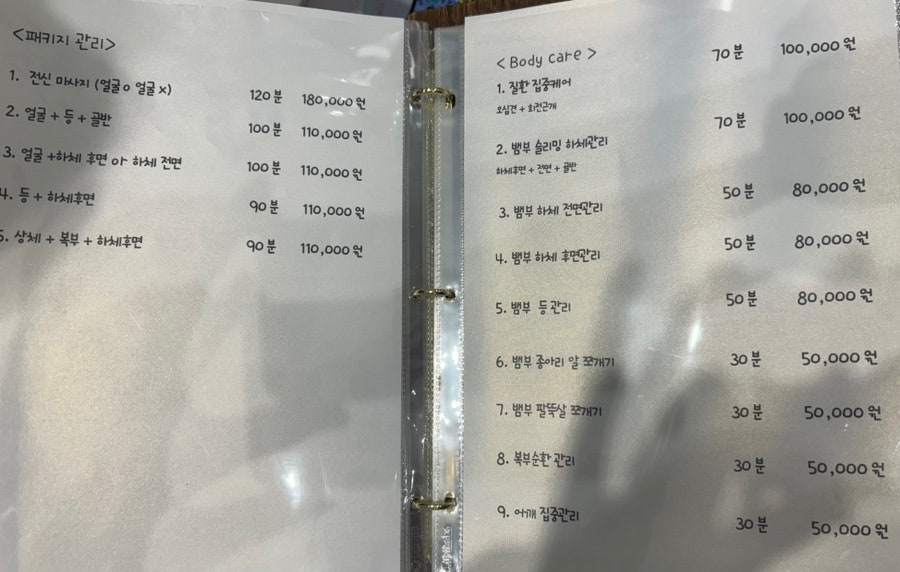 <패키지 관리>
1. 전신 마사지 (얼굴o 얼굴x) 120분 180,000원
2. 얼굴 + 등 + 골반 100분 110,000원
3. 얼굴 +하체 후면 or 하체 전면 100분 110,000원
4. 등 + 하체후면 90분 110,000원
5. 상체 + 복부 + 하체후면 90분 110,000원
< Body care >
1. 질환 집중케어 70분 100,000원
오십견 + 회전근개
2. 뱀부 슬리밍 하체관리 70분 100,000원
하체후면 + 전면 + 골반
3. 뱀부 하체 전면관리 50분 80,000원
4. 뱀부 하체 후면관리 50분 80,000원
5. 뱀부 등 관리 50분 80,000원
6. 뱀부 종아리 알 쪼개기 30분 50,000원
7. 뱀부 팔뚝살 쪼개기 30분 50,000원
8. 복부순환 관리 30분 50,000원
9. 어깨 집중관리 30분 50,000원